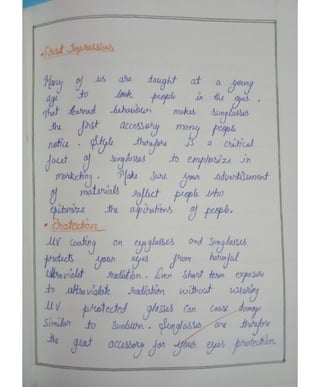 • First Impressions
Many of us are taught at a young
age to look people in the eyes.
That learned behaviour makes sunglasses
the first accessory many people
notice. Style therefore is a critical
facet of sunglasses to emphasize in
marketing. Make sure your advertisement
of materials reflect people who
epitomize the aspirations of people.
• Protection
UV coating on eyeglasses and Sunglasses
protects your eyes from harmful
ultraviolet radiation. Even Short term exposure
to ultraviolate radiation without wearing
UV protected glasses can cause damage
similar to sunburn. Sunglasses are therefore
the great accessory for your eyes protection